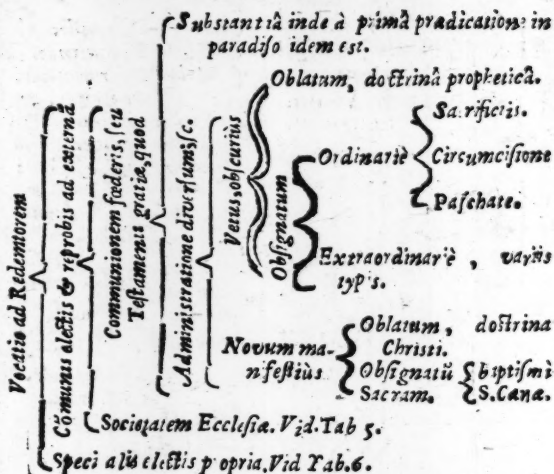 Vocatio ad Redemtorem
Cōmunis electis & reprobis ad externā
Communionem fœderis, seu
Testamenti gratiæ, quod
Substantiâ inde à primâ prædicatione in
paradiso idem est.
Administratione diversum; sc.
Vetus, obscurius
Oblatum, doctrinâ propheticâ.
Obsignatum
Ordinariè
Sacrificiis.
Circumcisione
Paschate.
Extraordinariè, variis
typis.
Novum ma-
nifestius
Oblatum, doctrina
Christi.
Obsignatū
Sacram.
baptismi
S. Cænæ.
Societatem Ecclesiæ. Vid. Tab 5.
Specialis electis propria, Vid Tab. 6.